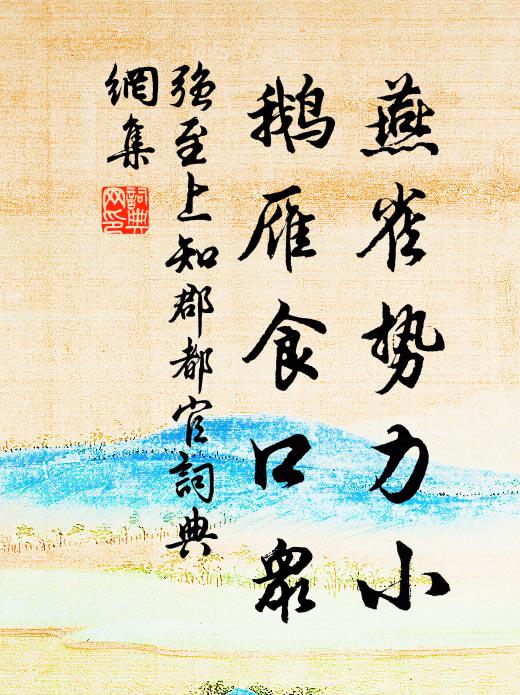 燕雀势力小
鹅雁食口眾
强至上知郡都官詞典
網集
詞典網印